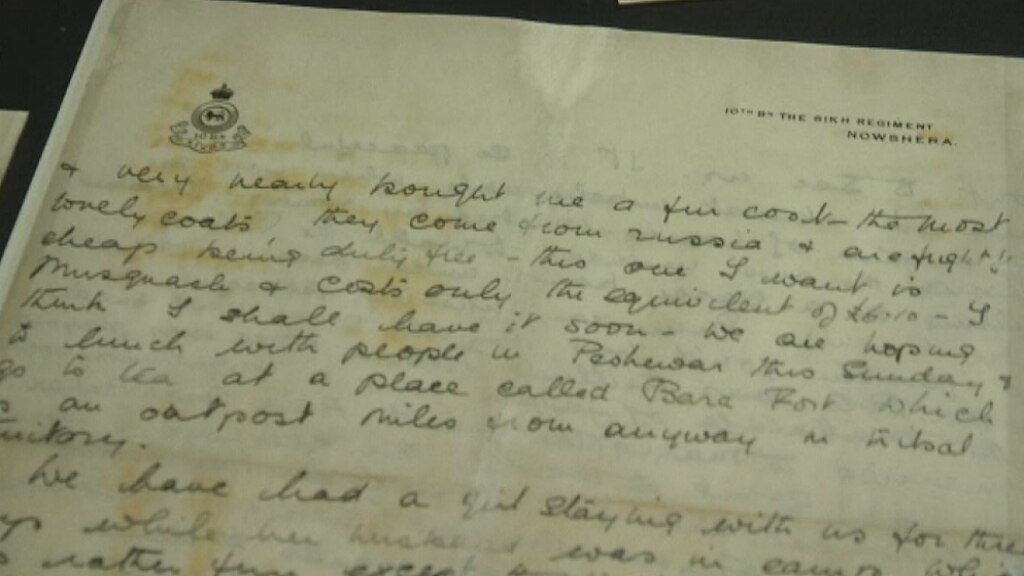 10TH BN THE SIKH REGIMENT
NOWSHERA.
& very nearly bought me a fur coat - the most
lovely coats, they come from russia & are fright:
cheap being duty free - this one I want is
Musquash & costs only the equivilent of £6-10 - I
think I shall have it soon - we are hoping
to lunch with people in Peshewar this Sunday &
go to tea at a place called Bara Fort which
is an outpost miles from anyway in tribal
We have had a girl staying with us for
while her husband was in camp
rather fun except